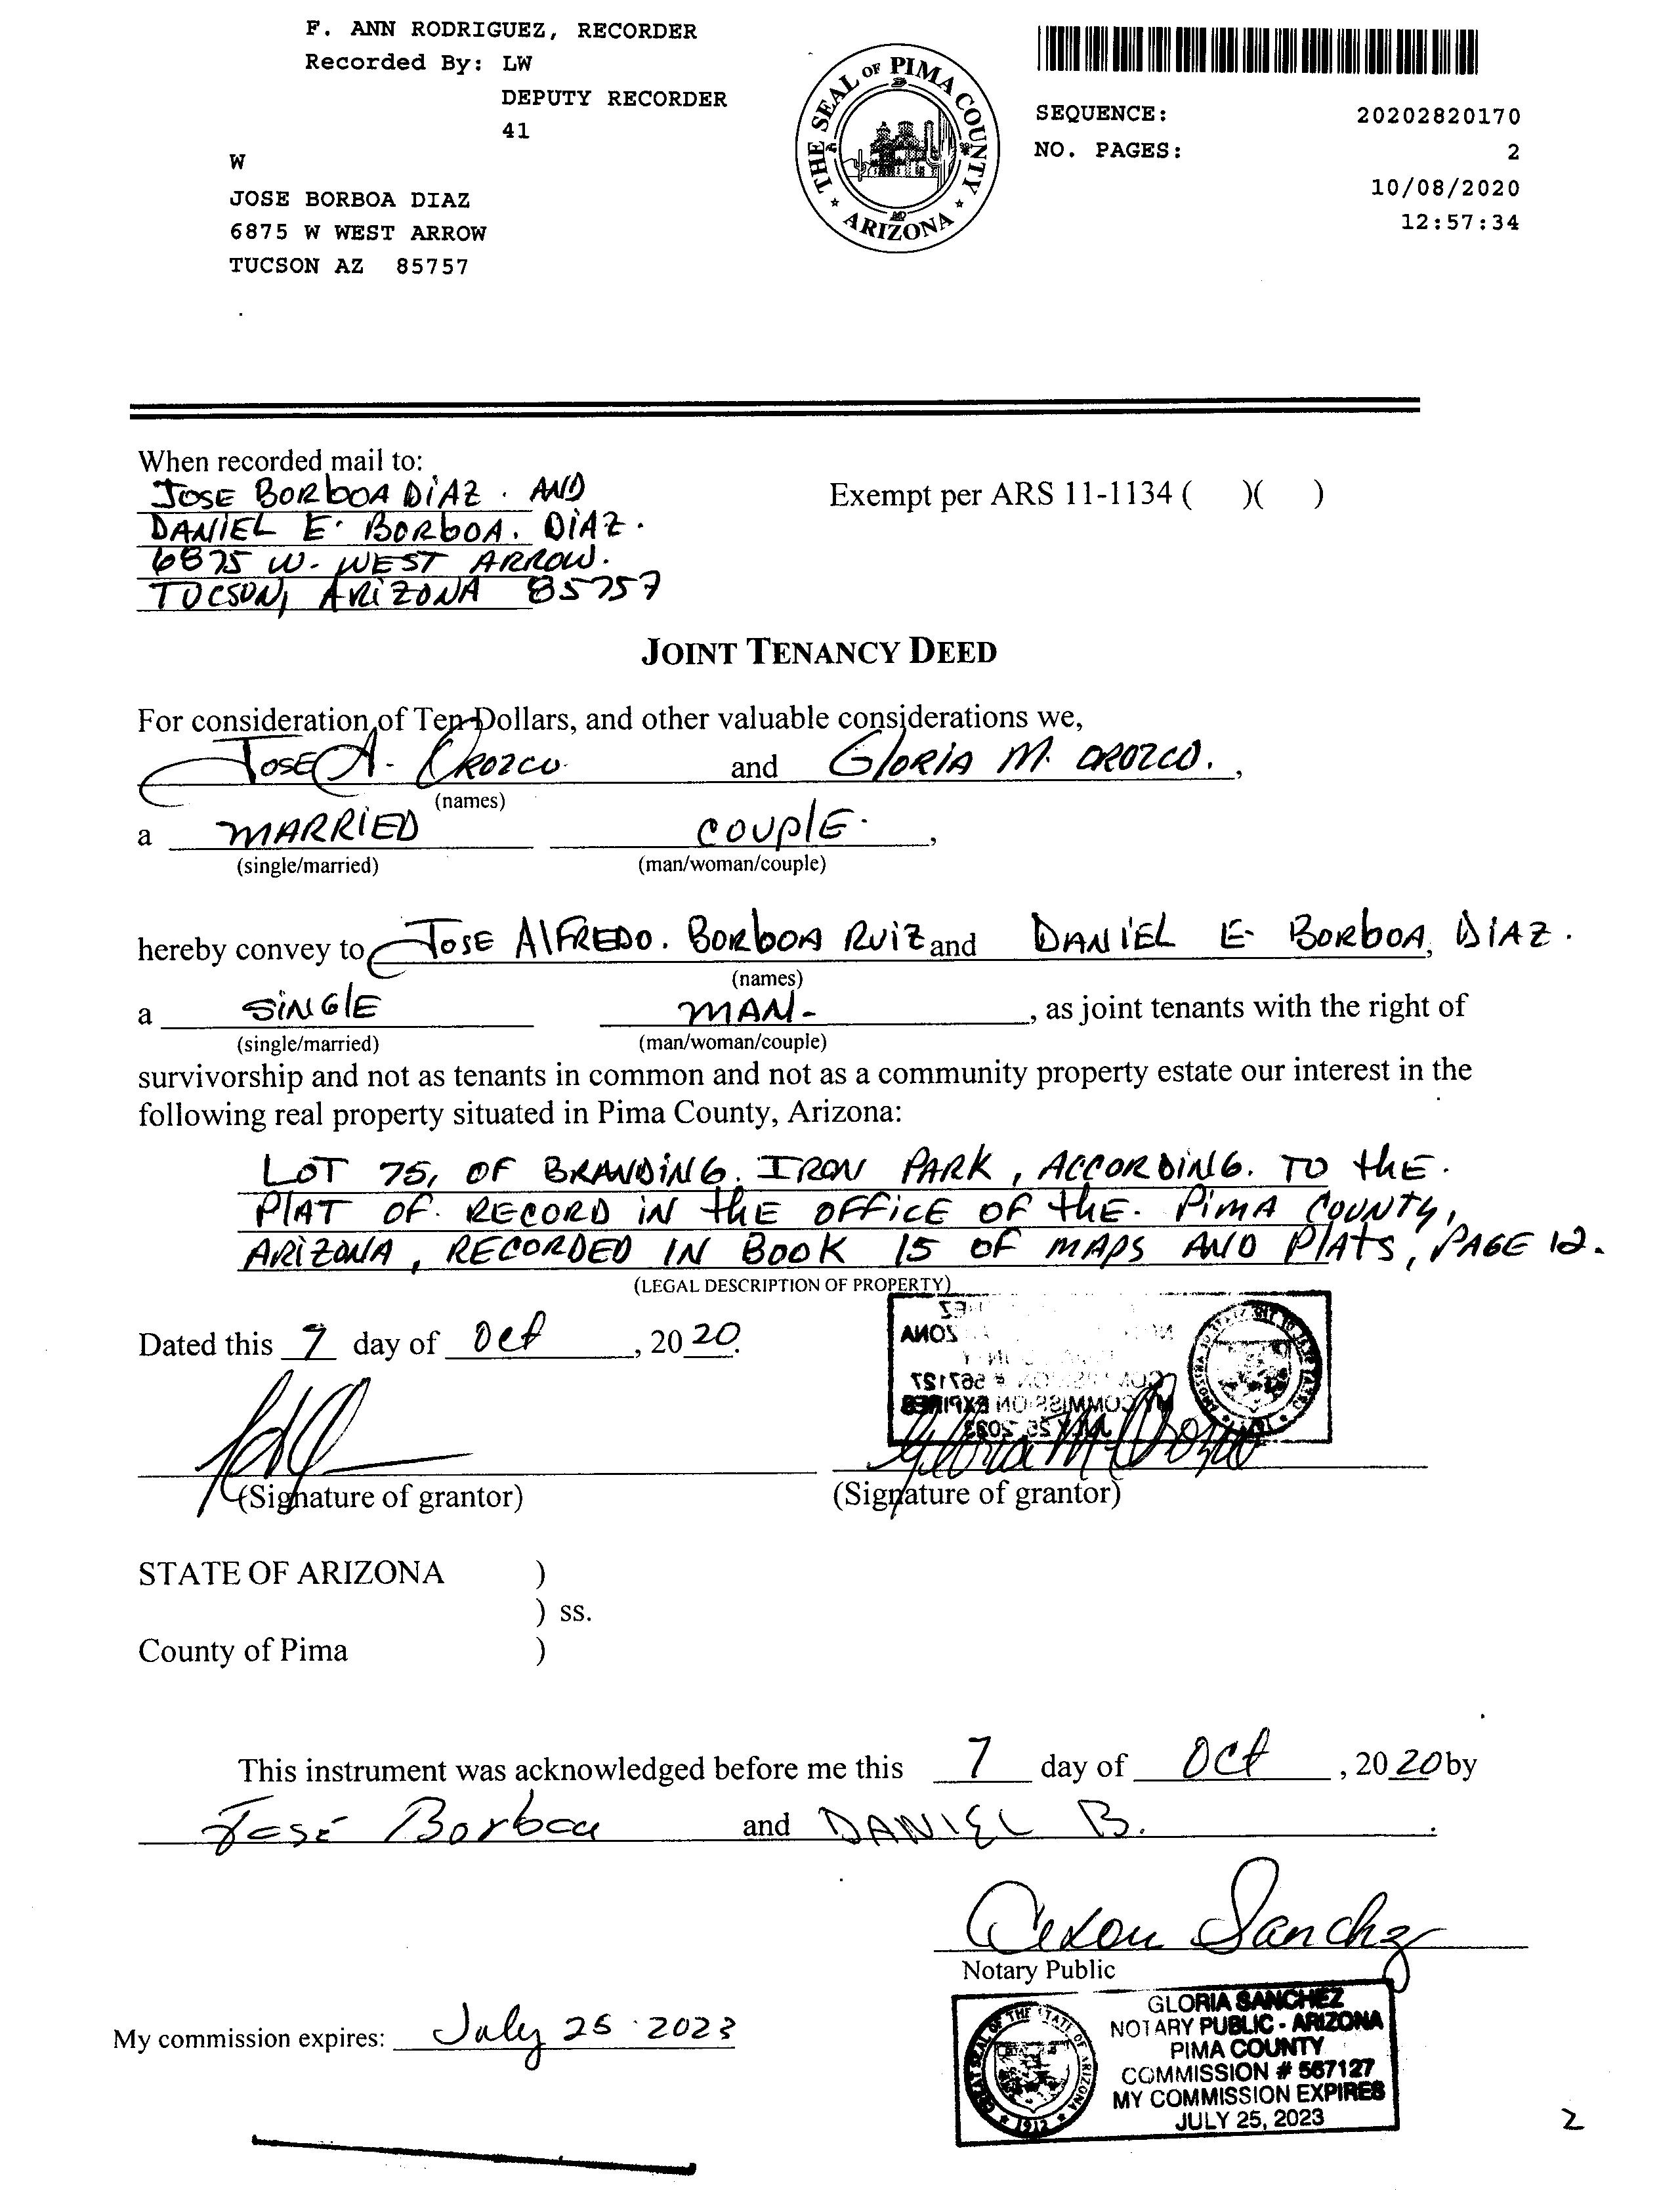 F. ANN RODRIGUEZ, RECORDER
Recorded By: LW
DEPUTY RECORDER
41
W
JOSE BORBOA DIAZ
6875 W WEST ARROW
TUCSON AZ 85757
THE SEAL OF PIMA COUNTY
ARIZONA
SEQUENCE: 20202820170
NO. PAGES: 2
10/08/2020
12:57:34
When recorded mail to:
JOSE BORBOA DIAZ . AND
DANIEL E. BORBOA. DIAZ.
6875 W. WEST ARROW.
TUCSON, ARIZONA 85757
Exempt per ARS 11-1134 ( )( )
JOINT TENANCY DEED
For consideration of Ten Dollars, and other valuable considerations we,
JOSE A. OROZCO. and GLORIA M. OROZCO. ,
(names)
a MARRIED COUPLE. ,
(single/married) (man/woman/couple)
hereby convey to JOSE ALFREDO. BORBOA RUIZ and DANIEL E- BORBOA, DIAZ.
(names)
a SINGLE MAN- , as joint tenants with the right of
(single/married) (man/woman/couple)
survivorship and not as tenants in common and not as a community property estate our interest in the
following real property situated in Pima County, Arizona:
LOT 75, OF BRANDING. IRON PARK, ACCORDING. TO thE.
PLAT OF. RECORD IN thE OFFICE OF thE. PIMA COUNTY,
ARIZONA, RECORDED IN BOOK 15 OF MAPS AND PLATS, PAGE 12.
(LEGAL DESCRIPTION OF PROPERTY)
Dated this 7 day of Oct , 20 20.
COMMISSION # 567127
MY COMMISSION EXPIRES
JULY 25, 2023
Gloria M Orozco
(Signature of grantor) (Signature of grantor)
STATE OF ARIZONA )
) ss.
County of Pima )
This instrument was acknowledged before me this 7 day of Oct , 20 20 by
José Borboa and DANIEL B. .
Sanchez
Notary Public
GREAT SEAL OF THE STATE OF ARIZONA
1912
GLORIA SANCHEZ
NOTARY PUBLIC - ARIZONA
PIMA COUNTY
COMMISSION # 567127
MY COMMISSION EXPIRES
JULY 25, 2023
My commission expires: July 25 2023
2